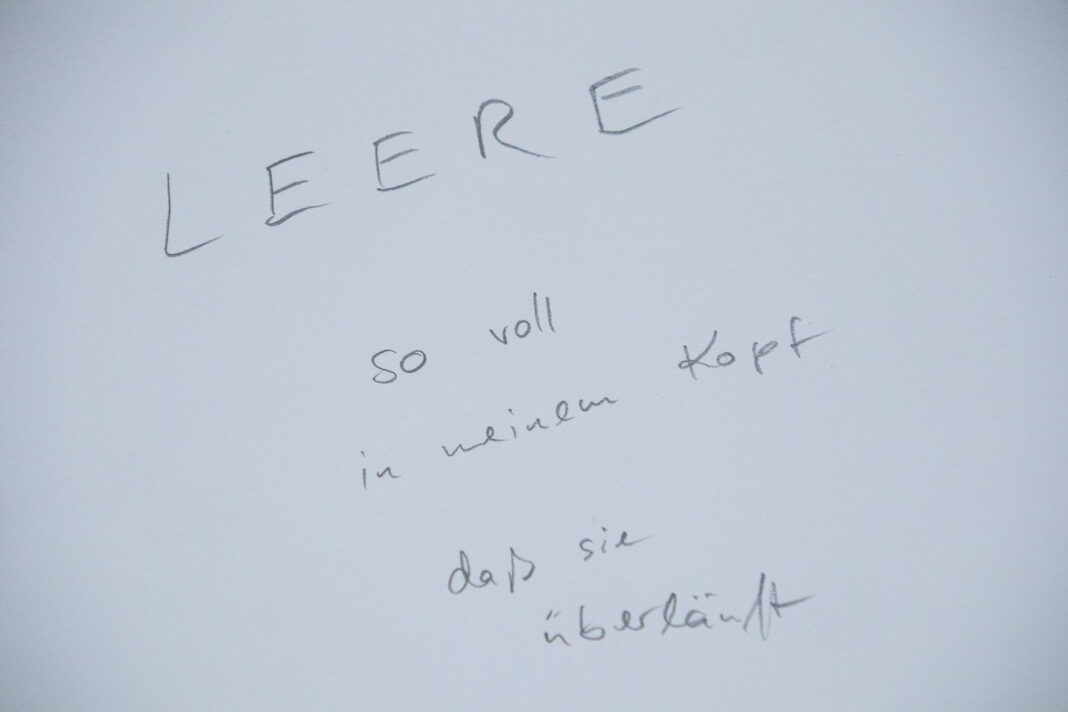 LEERE
so voll
in meinem Kopf
daß sie
überläuft